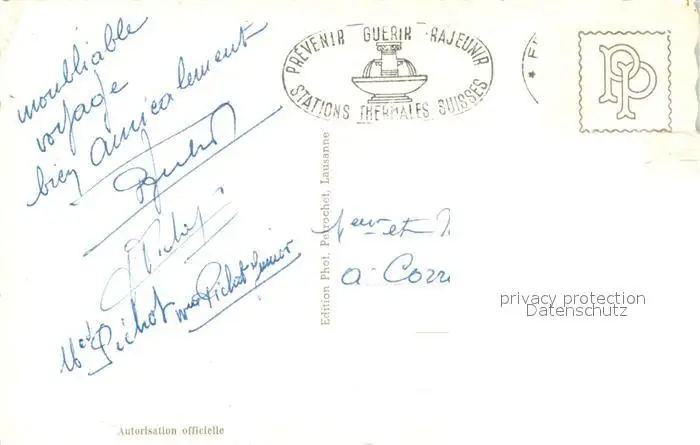 inoubliable
voyage
bien amicalement
Pichot
Pichot Junior
PRÉVENIR GUÉRIR RAJEUNIR
STATIONS THERMALES SUISSES
PP
Edition Phot. Perrochet, Lausanne
et
à
privacy protection
Datenschutz
Autorisation officielle